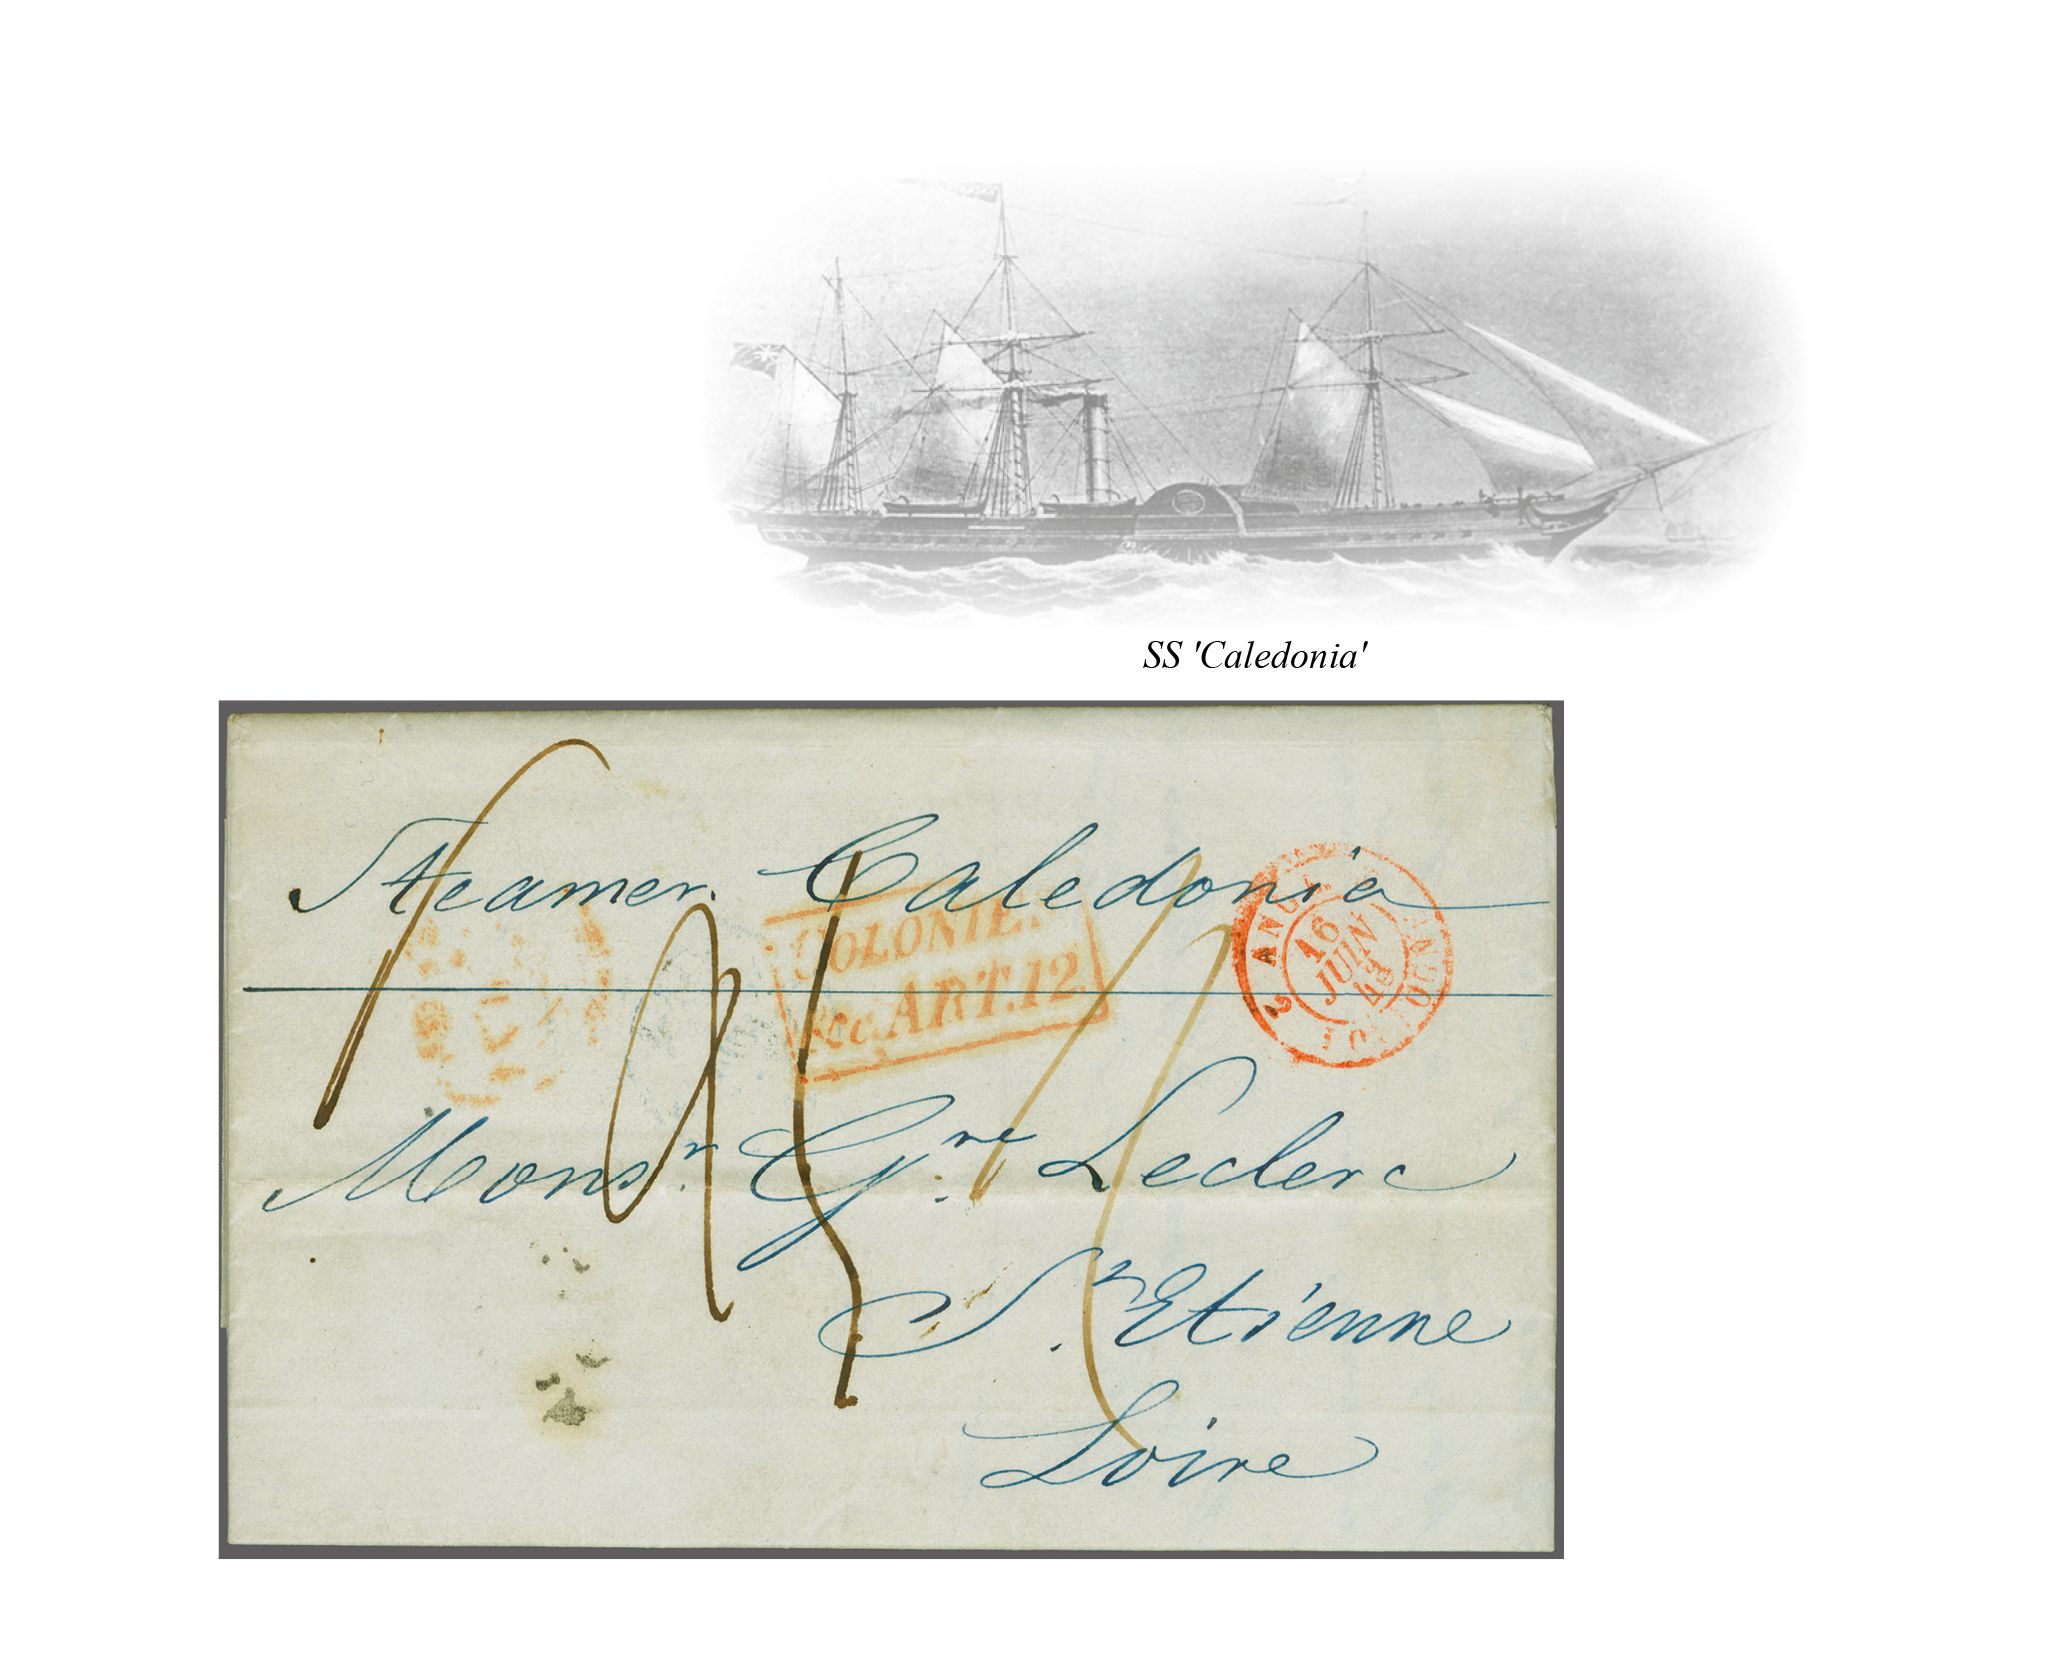 SS 'Caledonia'
Steamer. Caledonia
COLONIE.
&c. ART. 12.
2 ANGL. BOULOGNE 2
16
JUIN
Monsr. Gve. Leclerc
St. Etienne
Loire